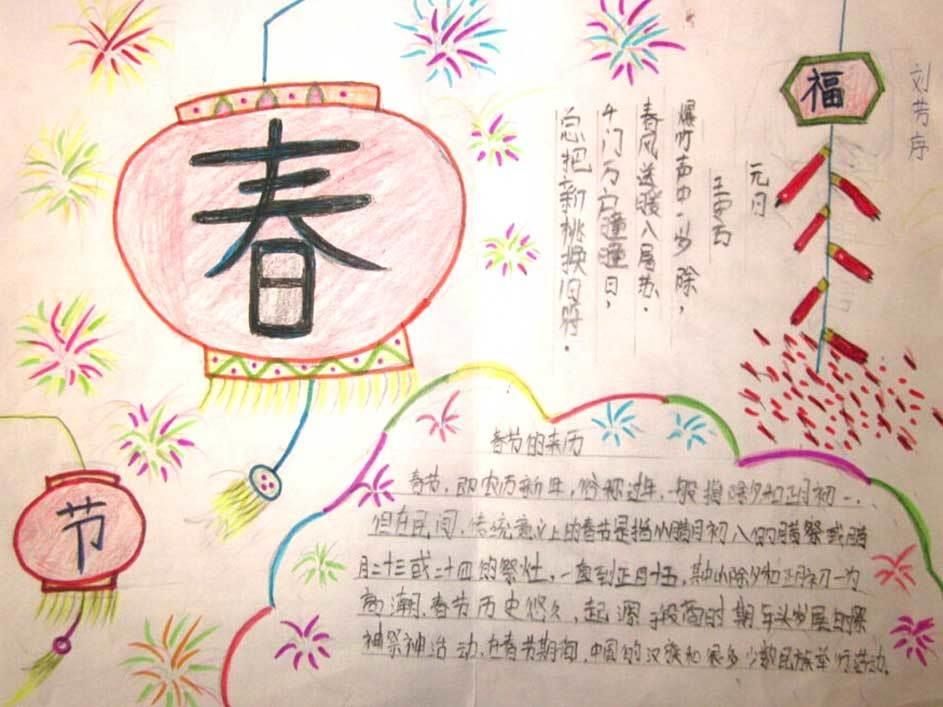 春
节
福
刘芳序
元日
王安石
爆竹声中一岁除，
春风送暖入屠苏.
千门万户瞳瞳日，
总把新桃换旧符.
春节的来历
春节，即农历新年，俗称过年，一般指除夕和正月初一，
但在民间，传统意义上的春节是指从腊月初八的腊祭或腊
月二十三或二十四的祭灶，一直到正月十五，其中以除夕和正月初一为
高潮.春节历史悠久，起源于殷商时期年头岁尾的祭
神祭神活动.在春节期间，中国的汉族和很多少数民族举行活动.